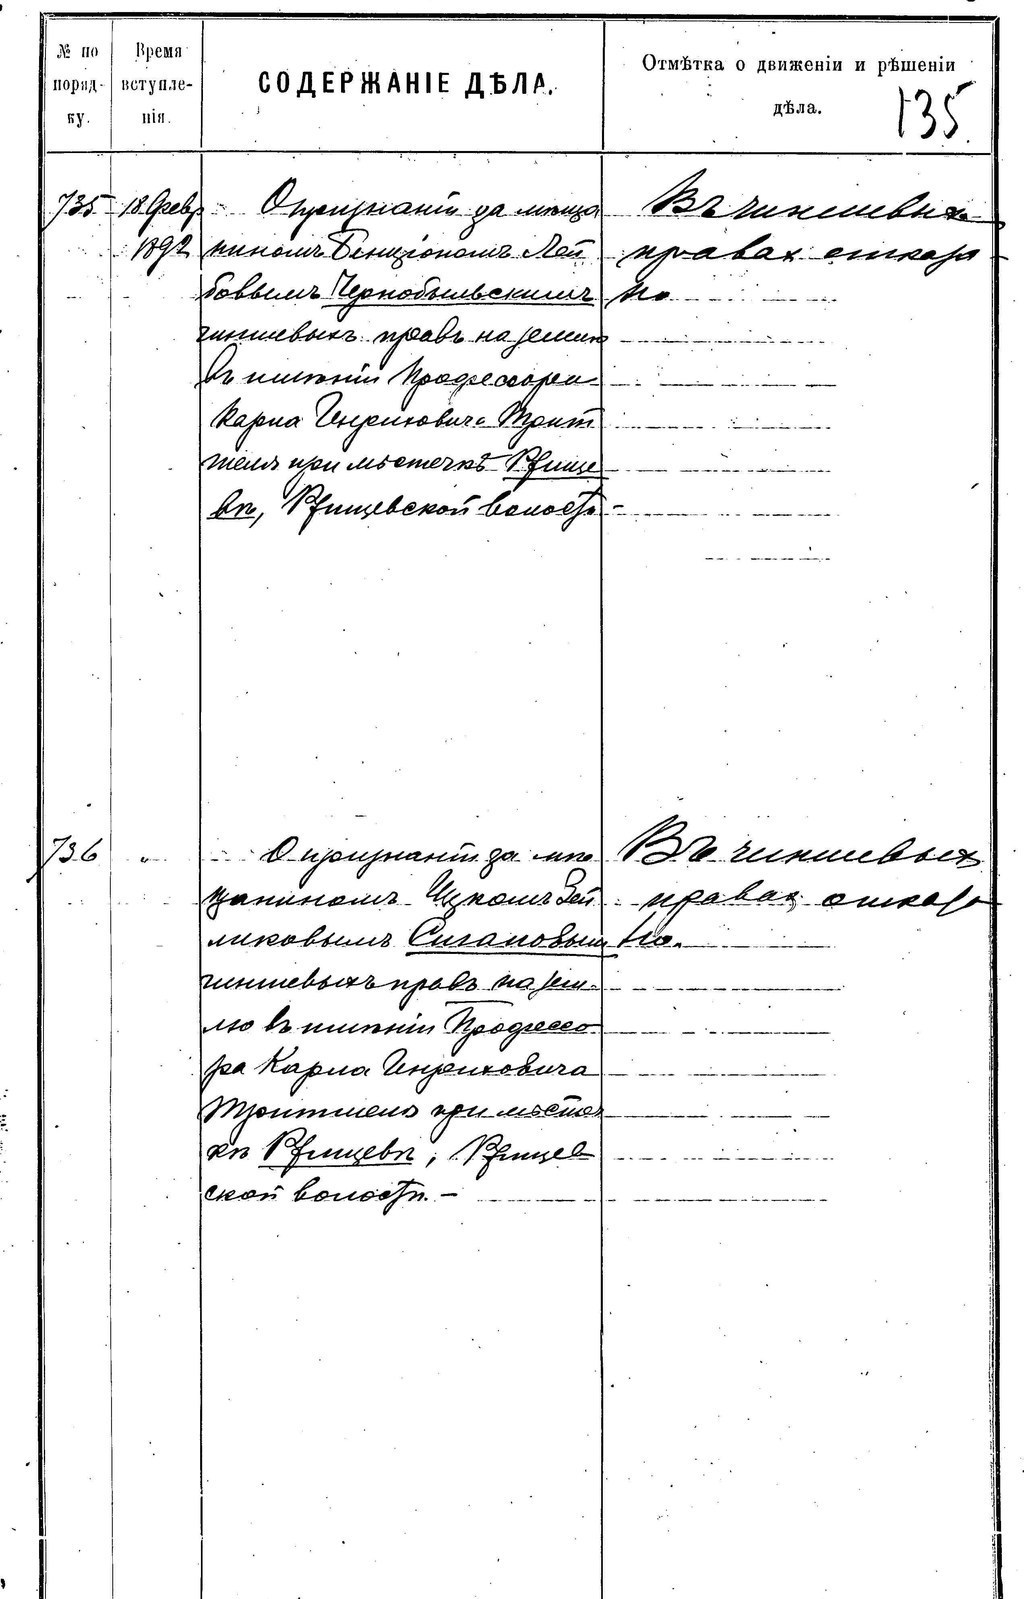 № по порядку.
Время вступленія.
СОДЕРЖАНІЕ ДѢЛА.
Отмѣтка о движеніи и рѣшеніи
дѣла.
135
735 18 Февр О признаніи за мѣща
1892 ниномъ Бенціономъ Лей
бовымъ Чернобыльскимъ
чиншевыхъ правъ на землю
въ имѣніи Профессора
Карла Генриховича Трит
шеля при мѣстечкѣ Ржище
вѣ, Ржищевской волости
Въ чиншевыхъ
правах отказа
но
736 " О признаніи за мѣ
щаниномъ Ицкомъ Зей
ликовымъ Сигаловым
чиншевыхъ правъ на зем
лю въ имѣніи Профессо
ра Карла Генриховича
Тритшеля при мѣстеч
кѣ Ржищевѣ, Ржищев
ской волости. —
Въ чиншевых
правах отказа
но.